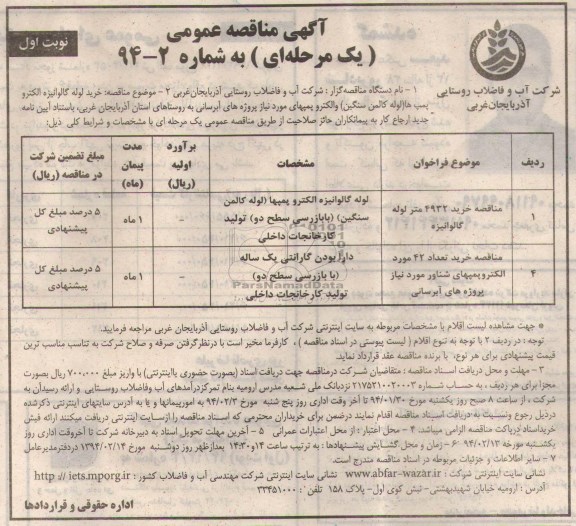 آگهی مناقصه عمومی
( یک مرحله‌ای ) به شماره ۲-۹۴
نوبت اول
شرکت آب و فاضلاب روستایی
آذربایجان‌غربی
۱ - نام دستگاه مناقصه‌گزار : شرکت آب و فاضلاب روستایی آذربایجان‌غربی ۲ - موضوع مناقصه: خرید لوله گالوانیزه الکترو
پمپ ها(لوله کالمن سنگین) والکترو پمپهای مورد نیاز پروژه های آبرسانی به روستاهای استان آذربایجان غربی، باستناد آیین نامه
جدید ارجاع کار به پیمانکاران حائز صلاحیت از طریق مناقصه عمومی یک مرحله ای با مشخصات و شرایط کلی ذیل:
ردیف موضوع فراخوان مشخصات برآورد اولیه (ریال) مدت پیمان (ماه) مبلغ تضمین شرکت در مناقصه (ریال)
۱ مناقصه خرید ۴۹۳۲ متر لوله گالوانیزه لوله گالوانیزه الکترو پمپها (لوله کالمن سنگین) (بابازرسی سطح دو) تولید کارخانجات داخلی - ۱ ماه ۵ درصد مبلغ کل پیشنهادی
۴ مناقصه خرید تعداد ۴۲ مورد الکتروپمپهای شناور مورد نیاز پروژه های آبرسانی دارابودن گارانتی یک ساله (با بازرسی سطح دو) تولید کارخانجات داخلی - ۱ ماه ۵ درصد مبلغ کل پیشنهادی
ParsNamadData
* جهت مشاهده لیست اقلام با مشخصات مربوطه به سایت اینترنتی شرکت آب و فاضلاب روستایی آذربایجان غربی مراجعه فرمایید.
توجه : در ردیف ۲ با توجه به تنوع اقلام ( لیست پیوستی در اسناد مناقصه ) ، کارفرما مخیر است با درنظرگرفتن صرفه و صلاح شرکت به تناسب مناسب ترین
قیمت پیشنهادی برای هر نوع، با برنده مناقصه عقد قرارداد نماید.
۳ - مهلت و محل دریافت اسناد مناقصه : متقاضیان شرکت درمناقصه جهت دریافت اسناد (بصورت حضوری یااینترنتی) با واریز مبلغ ۷۰۰,۰۰۰ ریال بصورت
مجزا برای هر ردیف ، به حساب شماره ۲۱۷۵۲۱۰۰۲۰۰۰۳ نزدبانک ملی شعبه مدرس ارومیه بنام تمرکزدرآمدهای آب وفاضلاب روستایی و ارائه رسیدان به
شرکت ، از ساعت ۸ صبح روز یکشنبه مورخ ۹۴/۰۱/۳۰ تا آخر وقت اداری روز پنج شنبه مورخ ۹۴/۰۲/۳ به امورپیمانها و یا به آدرس سایتهای اینترنتی ذکرشده
درذیل رجوع ونسبت به دریافت اسناد مناقصه اقدام نمایند درضمن برای خریداران محترمی که اسناد مناقصه را ازسایت اینترنتی دریافت میکنند ارائه فیش
خریداسناد درپاکت مناقصه الزامی میباشد. ۴ - محل اعتبار : از محل اعتبارات عمرانی ۵ - آخرین مهلت تحویل اسناد به دبیرخانه شرکت تا آخروقت اداری روز
یکشنبه مورخه ۹۴/۰۲/۱۳ ۶ - زمان و محل گشایش پیشنهادها : به ترتیب ساعت ۱۴و۱۴:۳۰ بعدازظهر روز دوشنبه مورخ ۱۳۹۴/۰۲/۱۴ دردفترمدیرعامل
۷ - سایر اطلاعات و جزئیات مربوطه در اسناد مناقصه مندرج است.
نشانی سایت اینترنتی شرکت : www.abfar-wazar.ir نشانی سایت اینترنتی شرکت مهندسی آب و فاضلاب کشور : http :// iets.mporg.ir
آدرس : ارومیه خیابان شهیدبهشتی- نبش کوی اول- پلاک ۱۵۸ تلفن : ۳۳۴۵۱۰۰۰
اداره حقوقی و قراردادها